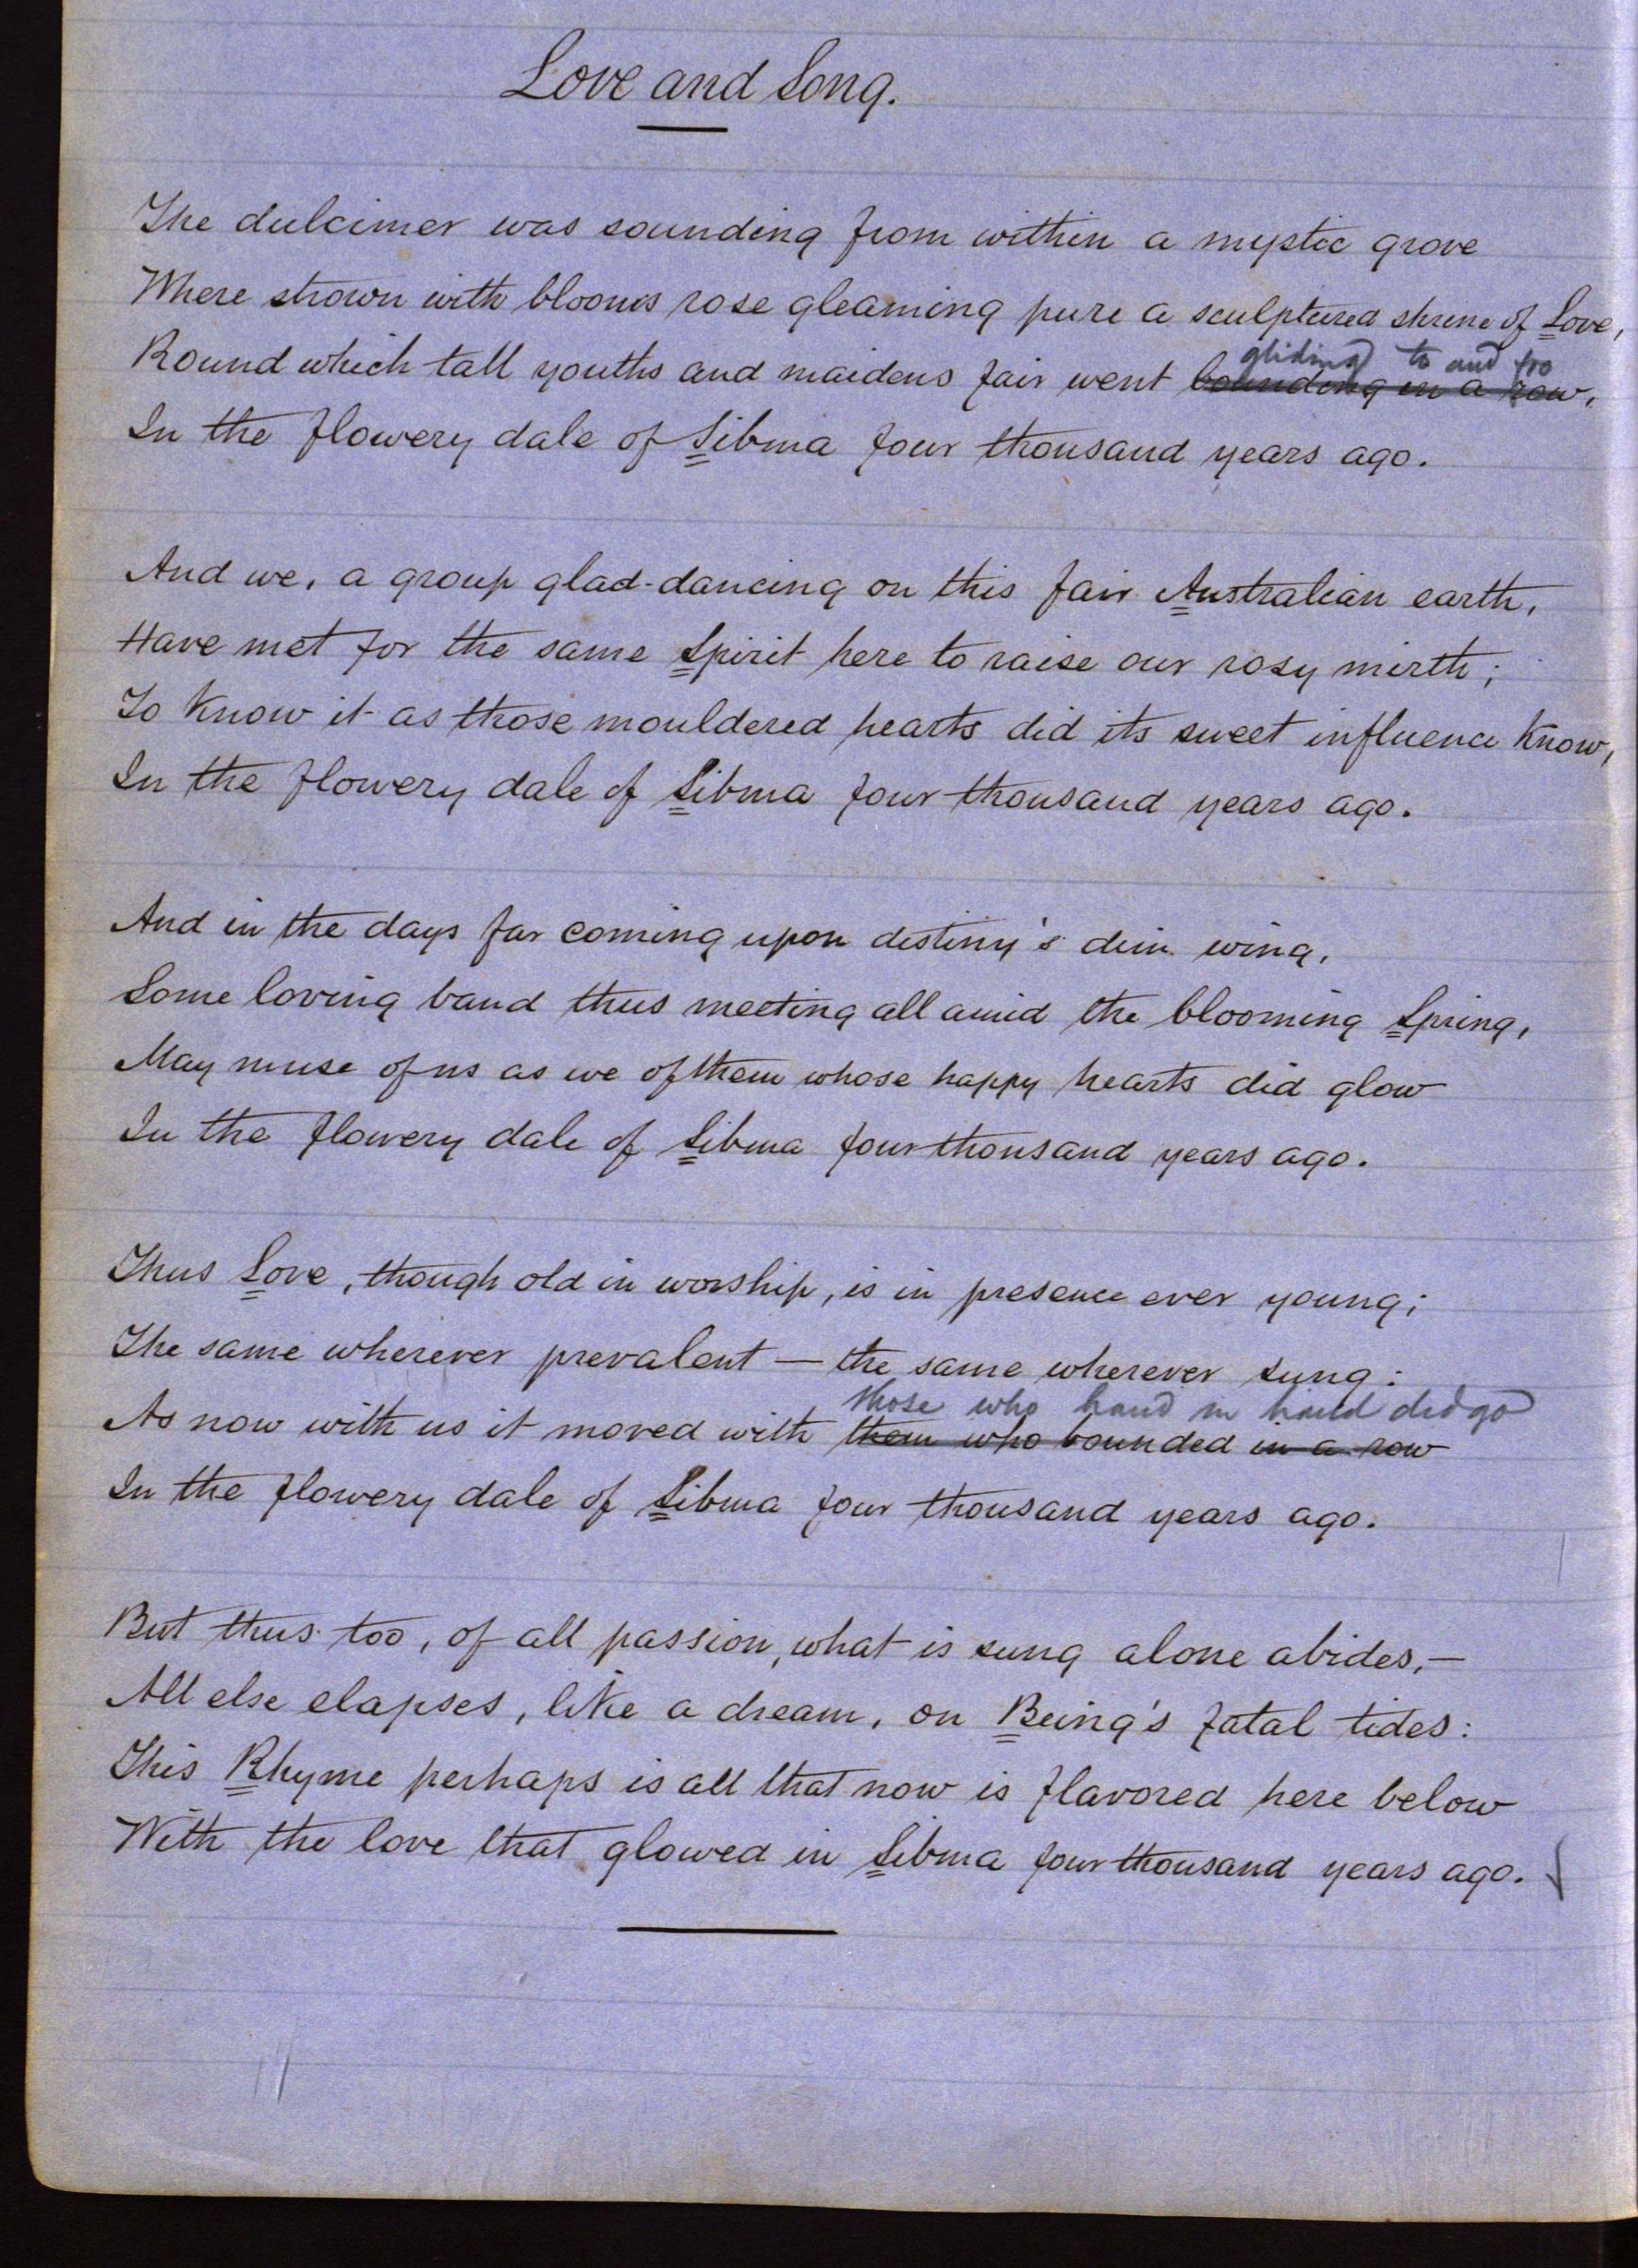 Love and Song.
The dulcimer was sounding from within a mystic grove
Where strown with blooms rose gleaming pure a sculptured shrine of Love,
gliding to and fro
Round which tall youths and maidens fair went bounding in a row,
In the flowery dale of Sibma four thousand years ago.
And we, a group glad-dancing on this fair Australian earth,
Have met for the same Spirit here to raise our rosy mirth;
To know it as those mouldered hearts did its sweet influence know,
In the flowery dale of Sibma four thousand years ago.
And in the days far coming upon destiny's dim wing,
Some loving band thus meeting all amid the blooming Spring,
May muse of us as we of them whose happy hearts did glow
In the flowery dale of Sibma four thousand years ago.
Thus Love, though old in worship, is in presence ever young;
The same wherever prevalent — the same wherever sung:
those who hand in hand did go
As now with us it moved with them who bounded in a row
In the flowery dale of Sibma four thousand years ago.
But thus too, of all passion, what is sung alone abides,—
All else elapses, like a dream, on Being's fatal tides:
This Rhyme perhaps is all that now is flavored here below
With the love that glowed in Sibma four thousand years ago.